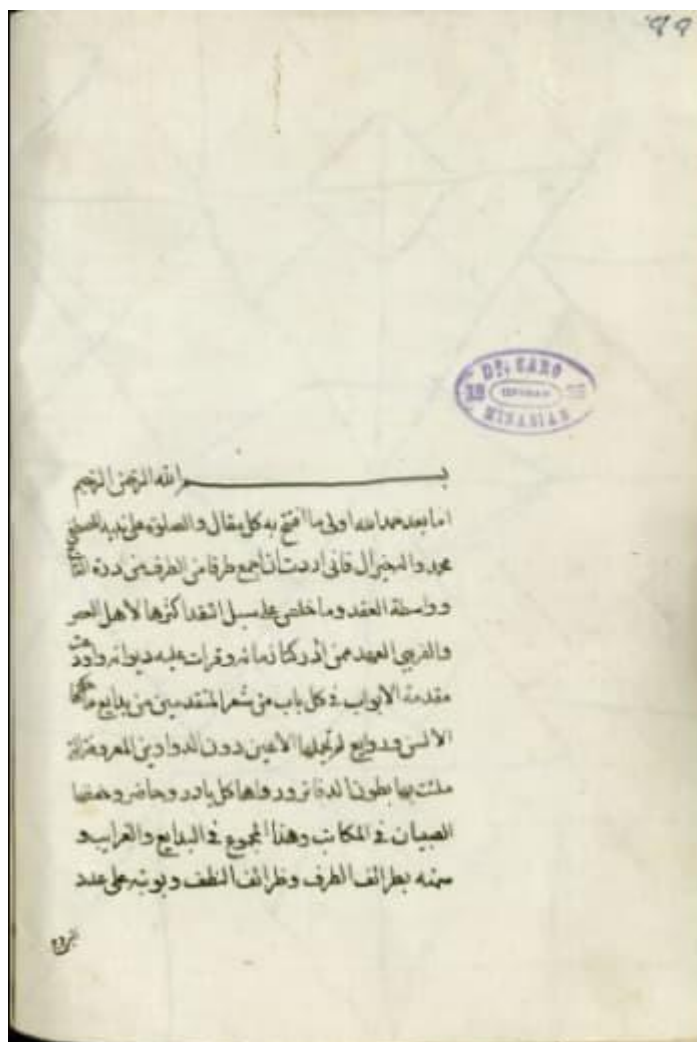 99
DR. CARO
MINASIAN
بسم الله الرحمن الرحيم
اما بعد حمد الله اولى ما افتتح به كل مقال والصلوة على نبيه
محمد واله خير ال فانى اردت ان اجمع طرفا من الطرف من درة
وواسطة العقد وما خلص على سبل النقد اكثرها لاهل العصر
والقريبى العهد ممن ادركنا زمانه وقرات عليه ديوانه واورد
مقدمة الابواب فى كل باب من شعر المتقدمين من بدايع ما
الالسن وروايع لم تجلها الاعين دون الدواوين المعروفة
ملئت بها بطون الدفاتر ورواها كل باد وحاضر وحفظها
الصبيان فى المكاتب وهذا المجموع فى البدايع والغرايب و
سمته بطرائف الطرف وظرائف النظف وبوبته على عدد